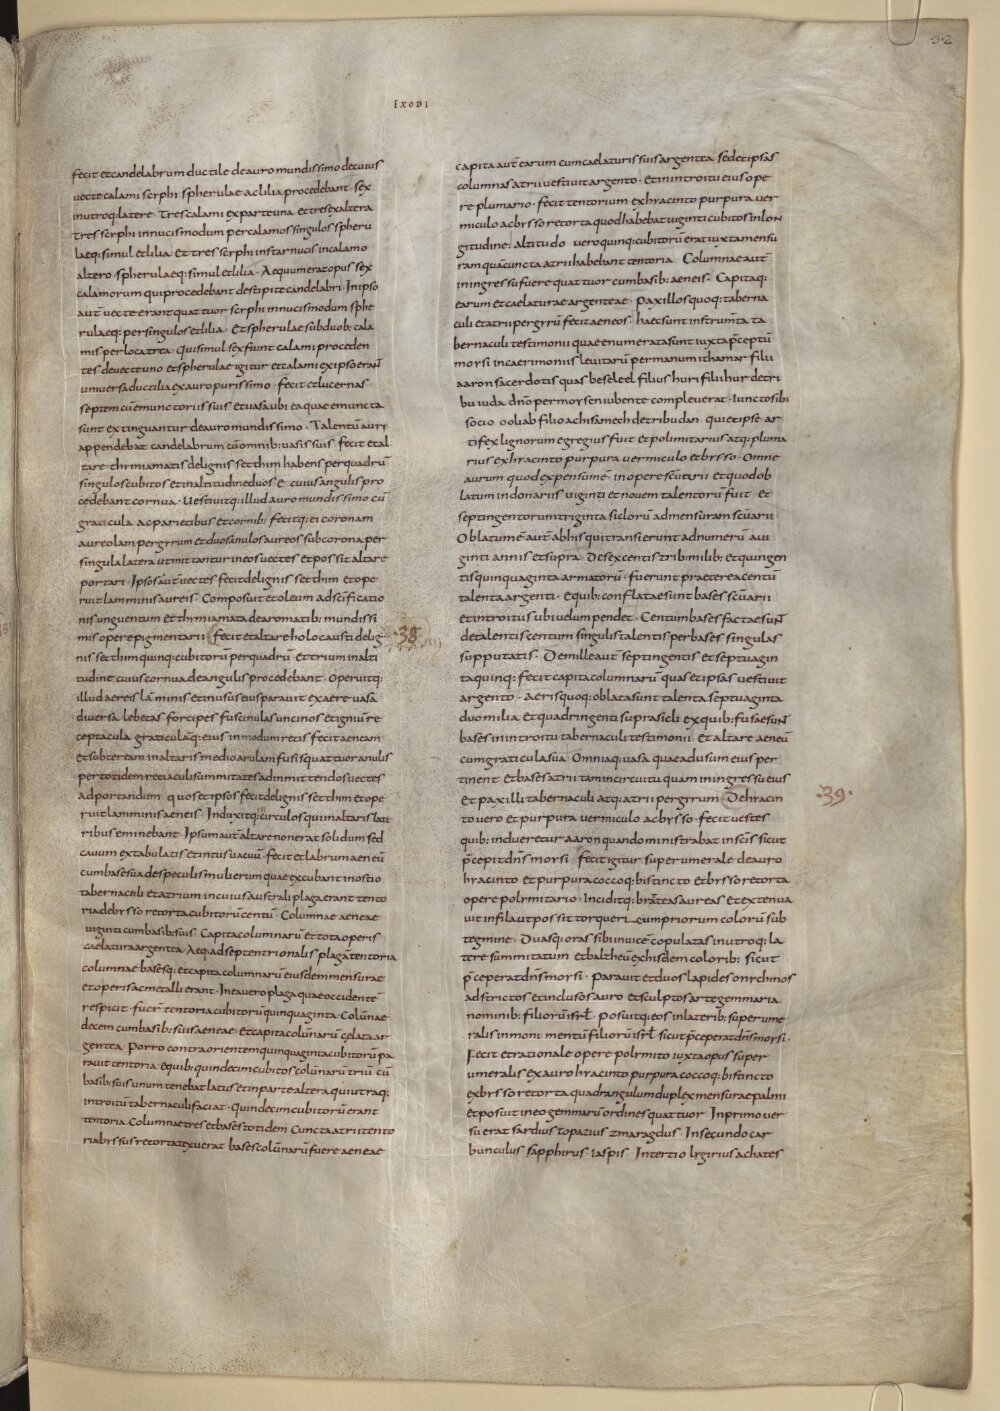 32
EXODI
fecit et candelabrum ductile de auro mundissimo de cuius
uecte calami scyphi spherulae ac lilia procedebant · sex
in utroq; latere · Tres calami ex parte una et tres ex altera
tres scyphi in nucis modum per calamos singulos spheru
laeq; simul et lilia · Et tres scyphi instar nucis in calamo
altero · spherulaeq; simul et lilia · Aequum erat opus sex
calamorum qui procedebant de stipite candelabri · In ipso
aut̄ uecte erant quattuor scyphi in nucis modum sphe
rulaeq; per singulos et lilia · Et spherulae sub duob; cala
mis per loca trea · qui simul sex fiunt calami proceden
tes de uecte uno et spherulae igitur et calami ex ipso eran̄
uniuersa ductilia ex auro purissimo · fecit et lucernas
septem cū emunctoriis suis et uasa ubi ea quae emuncta
sunt extinguantur de auro mundissimo · Talentū auri
appendebat candelabrum cū omnib; uasis suis · fecit et al
tare thymiamatis de lignis setthim habens per quadrū
singulos cubitos et in altitudine duos · e cuius angulis pro
cedebant cornua · Uestiuitq; illud auro mundissimo cū
graticula ac parietibus et cornib; · fecitq; ei coronam
aureolam per gyrum et duos anulos aureos sub corona per
singula latera ut mittantur in eos uectes et possit altare
portari · Ipsos aut̄ uectes fecit de lignis setthim et ope
ruit lamminis aureis · Composuit et oleum ad scīficatio
nis unguentum et thymiamata de aromatib; mundissi
mis opere pigmentarii · fecit et altare holocausti de lig
38
nis setthim quinq; cubitorū per quadrū · Et trium in alti
tudine cuius cornua de angulis procedebant · Operuitq;
illud aereis lāminis et in usus eius parauit ex aere uasa
diuersa lebetas forcipes fuscinulas uncinos et igniū re
ceptacula graticulāq; eius in modum retis fecit aeneam
et subter eam in altaris medio arulam fusis quattuor anulis
per totidem retiaculi summitates ad immittendos uectes
ad portandum · quos et ipsos fecit de lignis setthim et ope
ruit lamminis aeneis · Induxitq; circulos qui in altaris late
ribus eminebant · Ipsum aut̄ altare non erat solidum sed
cauum ex tabulatis et intus uacuū · fecit et labrum aeneū
cum base sua de speculis mulierum quae excubant in ostio
tabernaculi et atrium in cuius australi plaga erant tento
ria de bysso retorta cubitorū centū · Columnae aeneae
uiginti cum basib; suis · Capita columnarū et tota operis
caelatura argentea · Aeq; ad septentrionalis plagā tentoria
columnae basesq; et capita columnarū eiusdem mensurae
et operis ac metalli erant · In ea uero plaga quae occidentē
respicit · fuer̄ tentoria cubitorū quinquaginta · Colūnae
decem cum basib; suis aeneae · Et capita colūnarū cęlata ar
gentea · Porro contra orientem quinquaginta cubitorū pa
rauit tentoria · e quib; quindecim cubitos colūnarū triū cū
basib; suis unum tenebat latus et in parte altera quia utraq;
introitū tabernaculi faciat · Quindecim cubitorū erant
tentoria Columnae tres et bases totidem Cuncta atrii tento
ria byssus retorta texuerat bases colūnarū fuere aeneae
capita aut̄ earum cum caelaturis suis argentea sed et ipsas
columnas atrii uestiuit argento · Et in introitu eius ope
re plumario · fecit tentorium ex hyacinto purpura uer
miculo ac bysso retorta quod habebat uiginti cubitos in lon
gitudine · altitudo uero quinq; cubitorū erat iuxta mensu
ram quā cuncta atrii habebant tentoria · Columnae aut̄
in ingressu fuere quattuor cum basib; aeneis · Capitaq;
earum et caelaturae argenteae · Paxillos quoq; taberna
culi et atrii per gyrū fecit aeneos · haec sunt instrum̄ta ta
bernaculi testimonii quae enumerata sunt iuxta p̄ceptū
moysi in caerimoniis leuitarū per manum ithamar filii
aaron sacerdotis quas beseleel filius huri filii hur de tri
bu iuda dn̄o per moysen iubente compleuerat · Iuncto sibi
socio ooliab filio achisamech de tribu dan · qui et ipse ar
tifex lignorum egregius fuit et polimitarius atq; pluma
rius ex hyacinto purpura uermiculo et bysso · Omne
aurum quod expensum ē · in opere scūarii et quod ob
latum in donariis uiginti et nouem talentorū fuit · et
septingentorum triginta siclorū ad mensuram scūarii
Oblatum ē aut̄ ab his qui transierunt ad numerū a ui
ginti annis et supra · De sexcentis trib; milib; et quingen
tis quinquaginta armatorū · fuerunt praeterea centū
talenta argenti · E quib; conflatae sunt bases scūarii
et introitus ubi uelum pendet · Centum bases factae sun̄
de talentis centum singulis talentis per bases singulas
supputatis · De mille aut̄ septingentis et septuagin
ta quinq; fecit capita columnarū quas et ipsas uestiuit
argento · aeris quoq; oblata sunt talenta septuaginta
duo milia et quadringenti supra sicli ex quib; fusae sun̄
bases in introitu tabernaculi testimonii · Et altare aeneū
cum graticula sua · Omniaq; uasa quae ad usum eius per
tinent et bases atrii tam in circuitu quam in ingressu eius
et paxilli tabernaculi atq; atrii per gyrum De hyacin
39
to uero et purpura uermiculo ac bysso · fecit uestes
quib; indueretur aaron quando ministrabat in scīs sicut
p̄cepit dn̄s moysi · fecit igitur superumerale de auro
hyacinto et purpura coccoq; bis tincto et bysso retorta
opere polymitario · Inciditq; bratteas aureas et extenua
uit in fila ut possit torqueri cum priorum colorū sub
tegmine · Duasq; oras sibi inuicē copulatas in utroq; la
tere summitatum et baltheū ex hisdem colorib; sicut
p̄ceperat dn̄s moysi · Parauit et duos lapides onychinos
adstrictos et inclusos auro et sculptos arte gemmaria
nominib; filiorū isrl̄ · Posuitq; eos in laterib; superume
ralis in monimentū filiorū isrl̄ sicut p̄ceperat dn̄s moysi ·
Fecit et rationale opere polymito iuxta opus super
umeralis ex auro hyacinto purpura coccoq; bis tincto
ex bysso retorta quadrangulum duplex mensurae palmi
et posuit in eo gemmarū ordines quattuor · In primo uer
su erat sardius topazius zmaragdus · In secundo car
bunculus sapphirus iaspis · In tertio lygirius achates